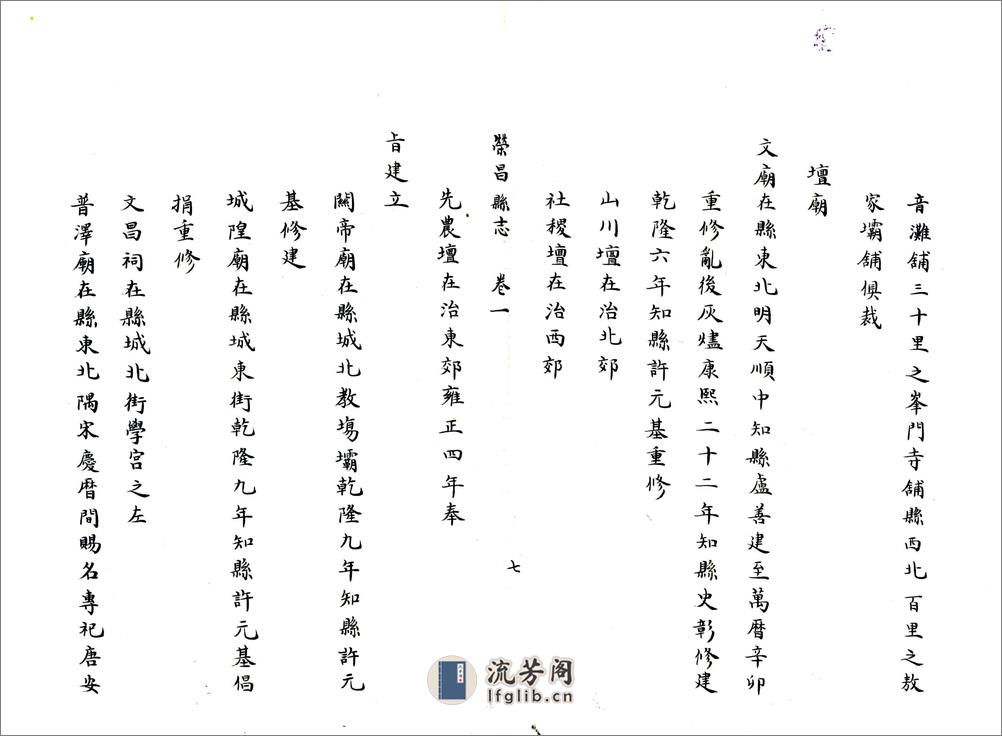 音灘舖三十里之峯門寺舖縣西北百里之敖
家壩舖俱裁
壇廟
文廟在縣東北明天順中知縣盧善建至萬曆辛卯
重修亂後灰燼康熙二十二年知縣史彰修建
乾隆六年知縣許元基重修
山川壇在治北郊
社稷壇在治西郊
榮昌縣志 卷一 七
先農壇在治東郊雍正四年奉
旨建立
關帝廟在縣城北教塲壩乾隆九年知縣許元
基修建
城隍廟在縣城東街乾隆九年知縣許元基倡
捐重修
文昌祠在縣城北街學宮之左
普澤廟在縣東北隅宋慶曆間賜名專祀唐安
流芳阁
lfglib.cn